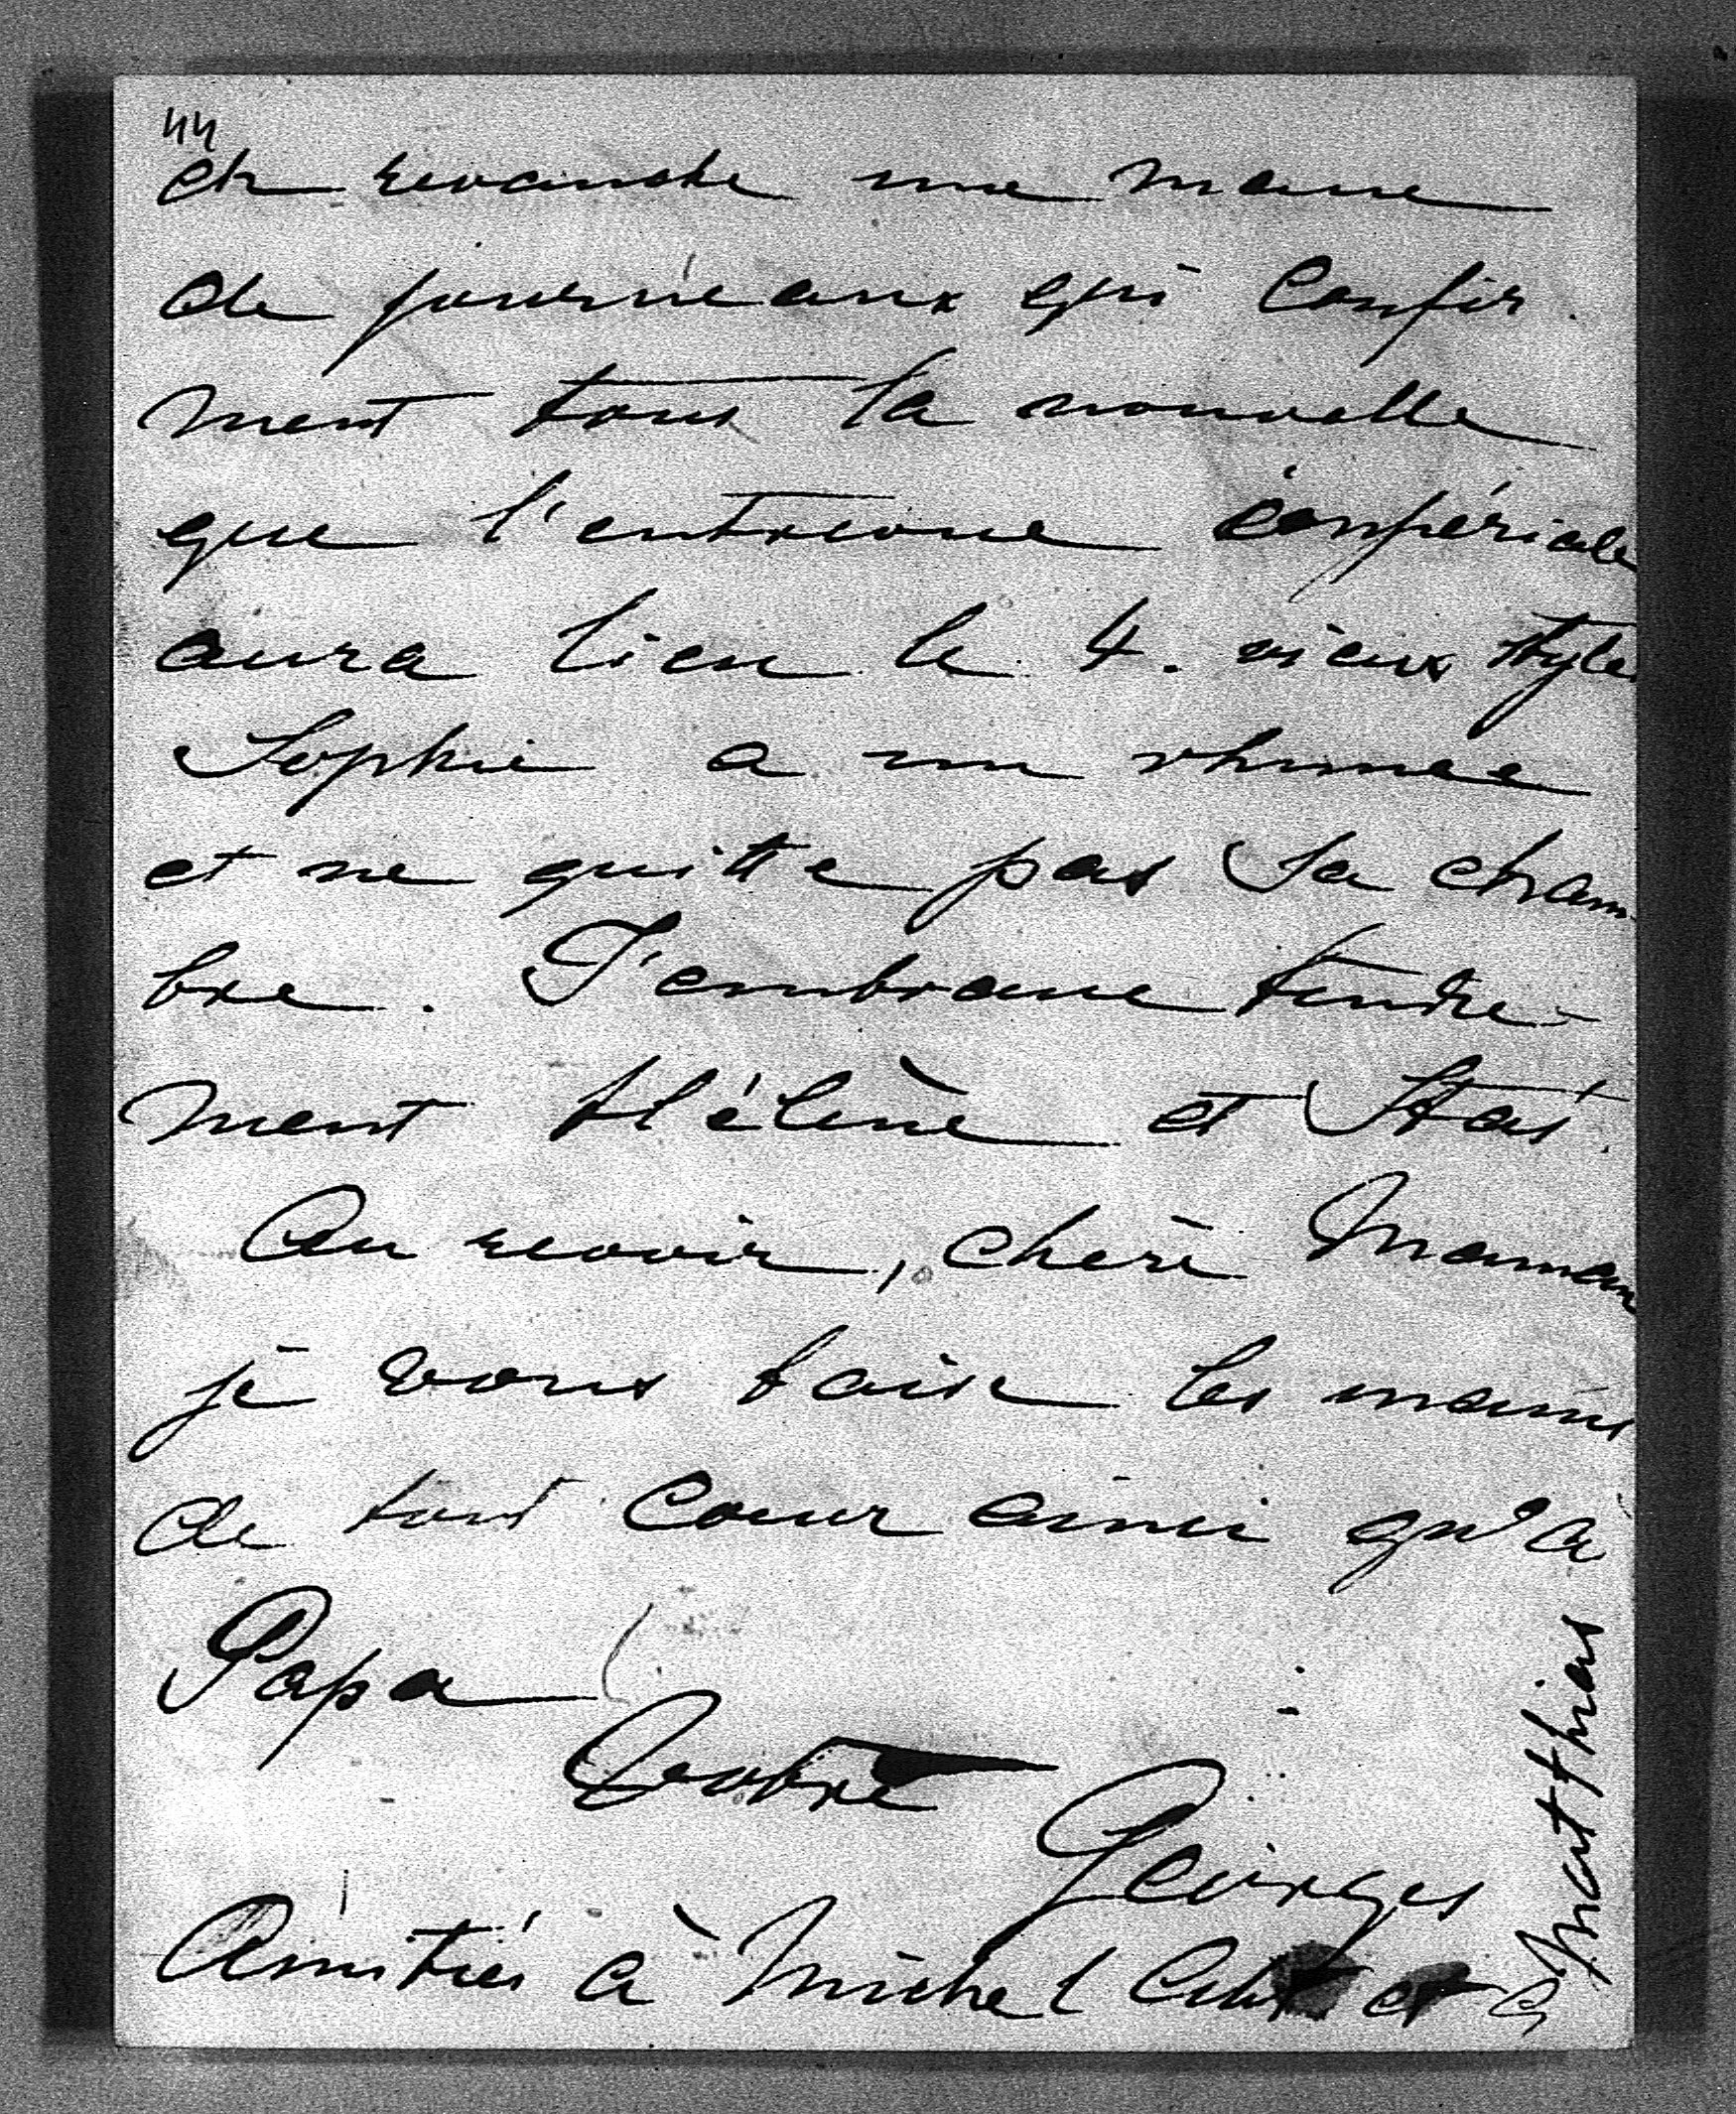 44
en revanche une masse
de journeaux qui confir-
ment tous la nouvelle
que l'entrevue impériale
aura lieu le 4. vieux style.
Sophie a un rhume
et ne quitte pas sa cham-
bre. J'embrasse tendre-
ment Hélène et Stas.
Au revoir, chère Maman
je vous baise les mains
de tout coeur ainsi qu'à
Papa
Votre
Georges
Amitiés à Michel et à
Matthias